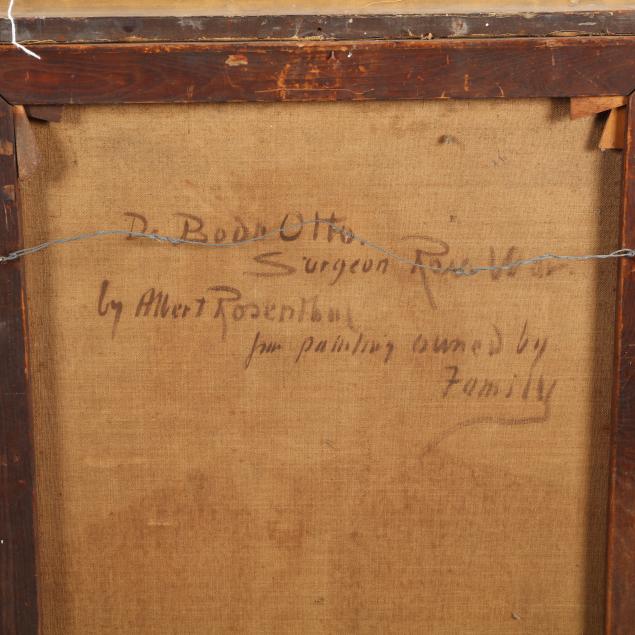 Dr. Bodo Otto.
Surgeon Rev. War
by Albert Rosenthal
from painting owned by
Family